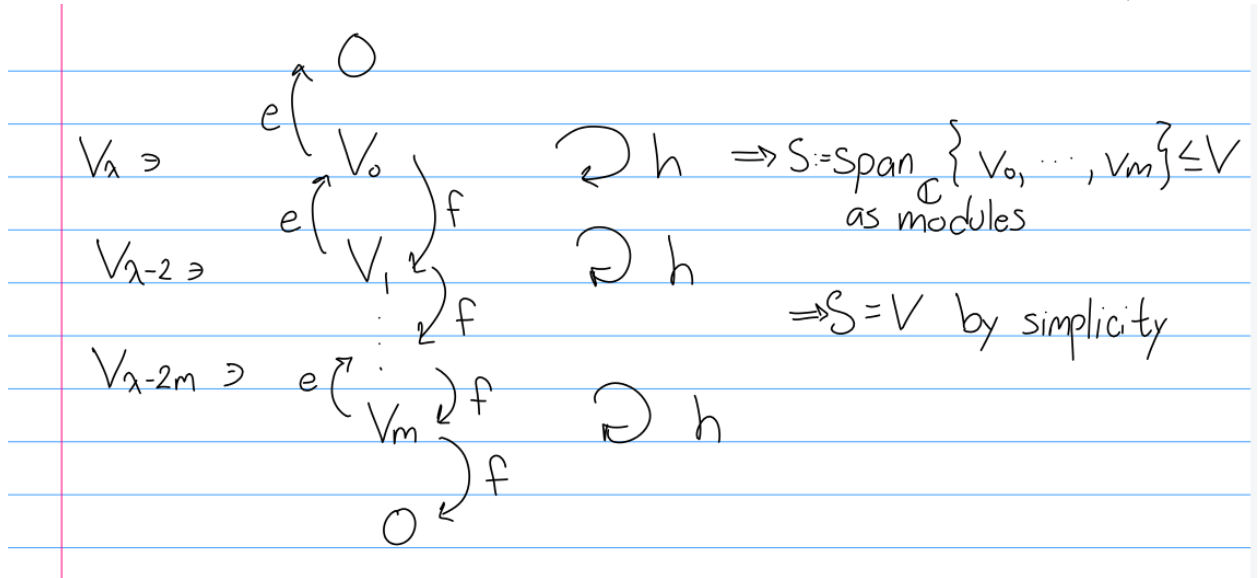 0
e
V_λ ∋ V_0 h ⇒ S:=Span_ℂ{V_0, ⋯, V_m} ≤ V
e f as modules
V_{λ-2} ∋ V_1 h
f ⇒ S = V by simplicity
⋮
V_{λ-2m} ∋ e f
V_m h
f
0